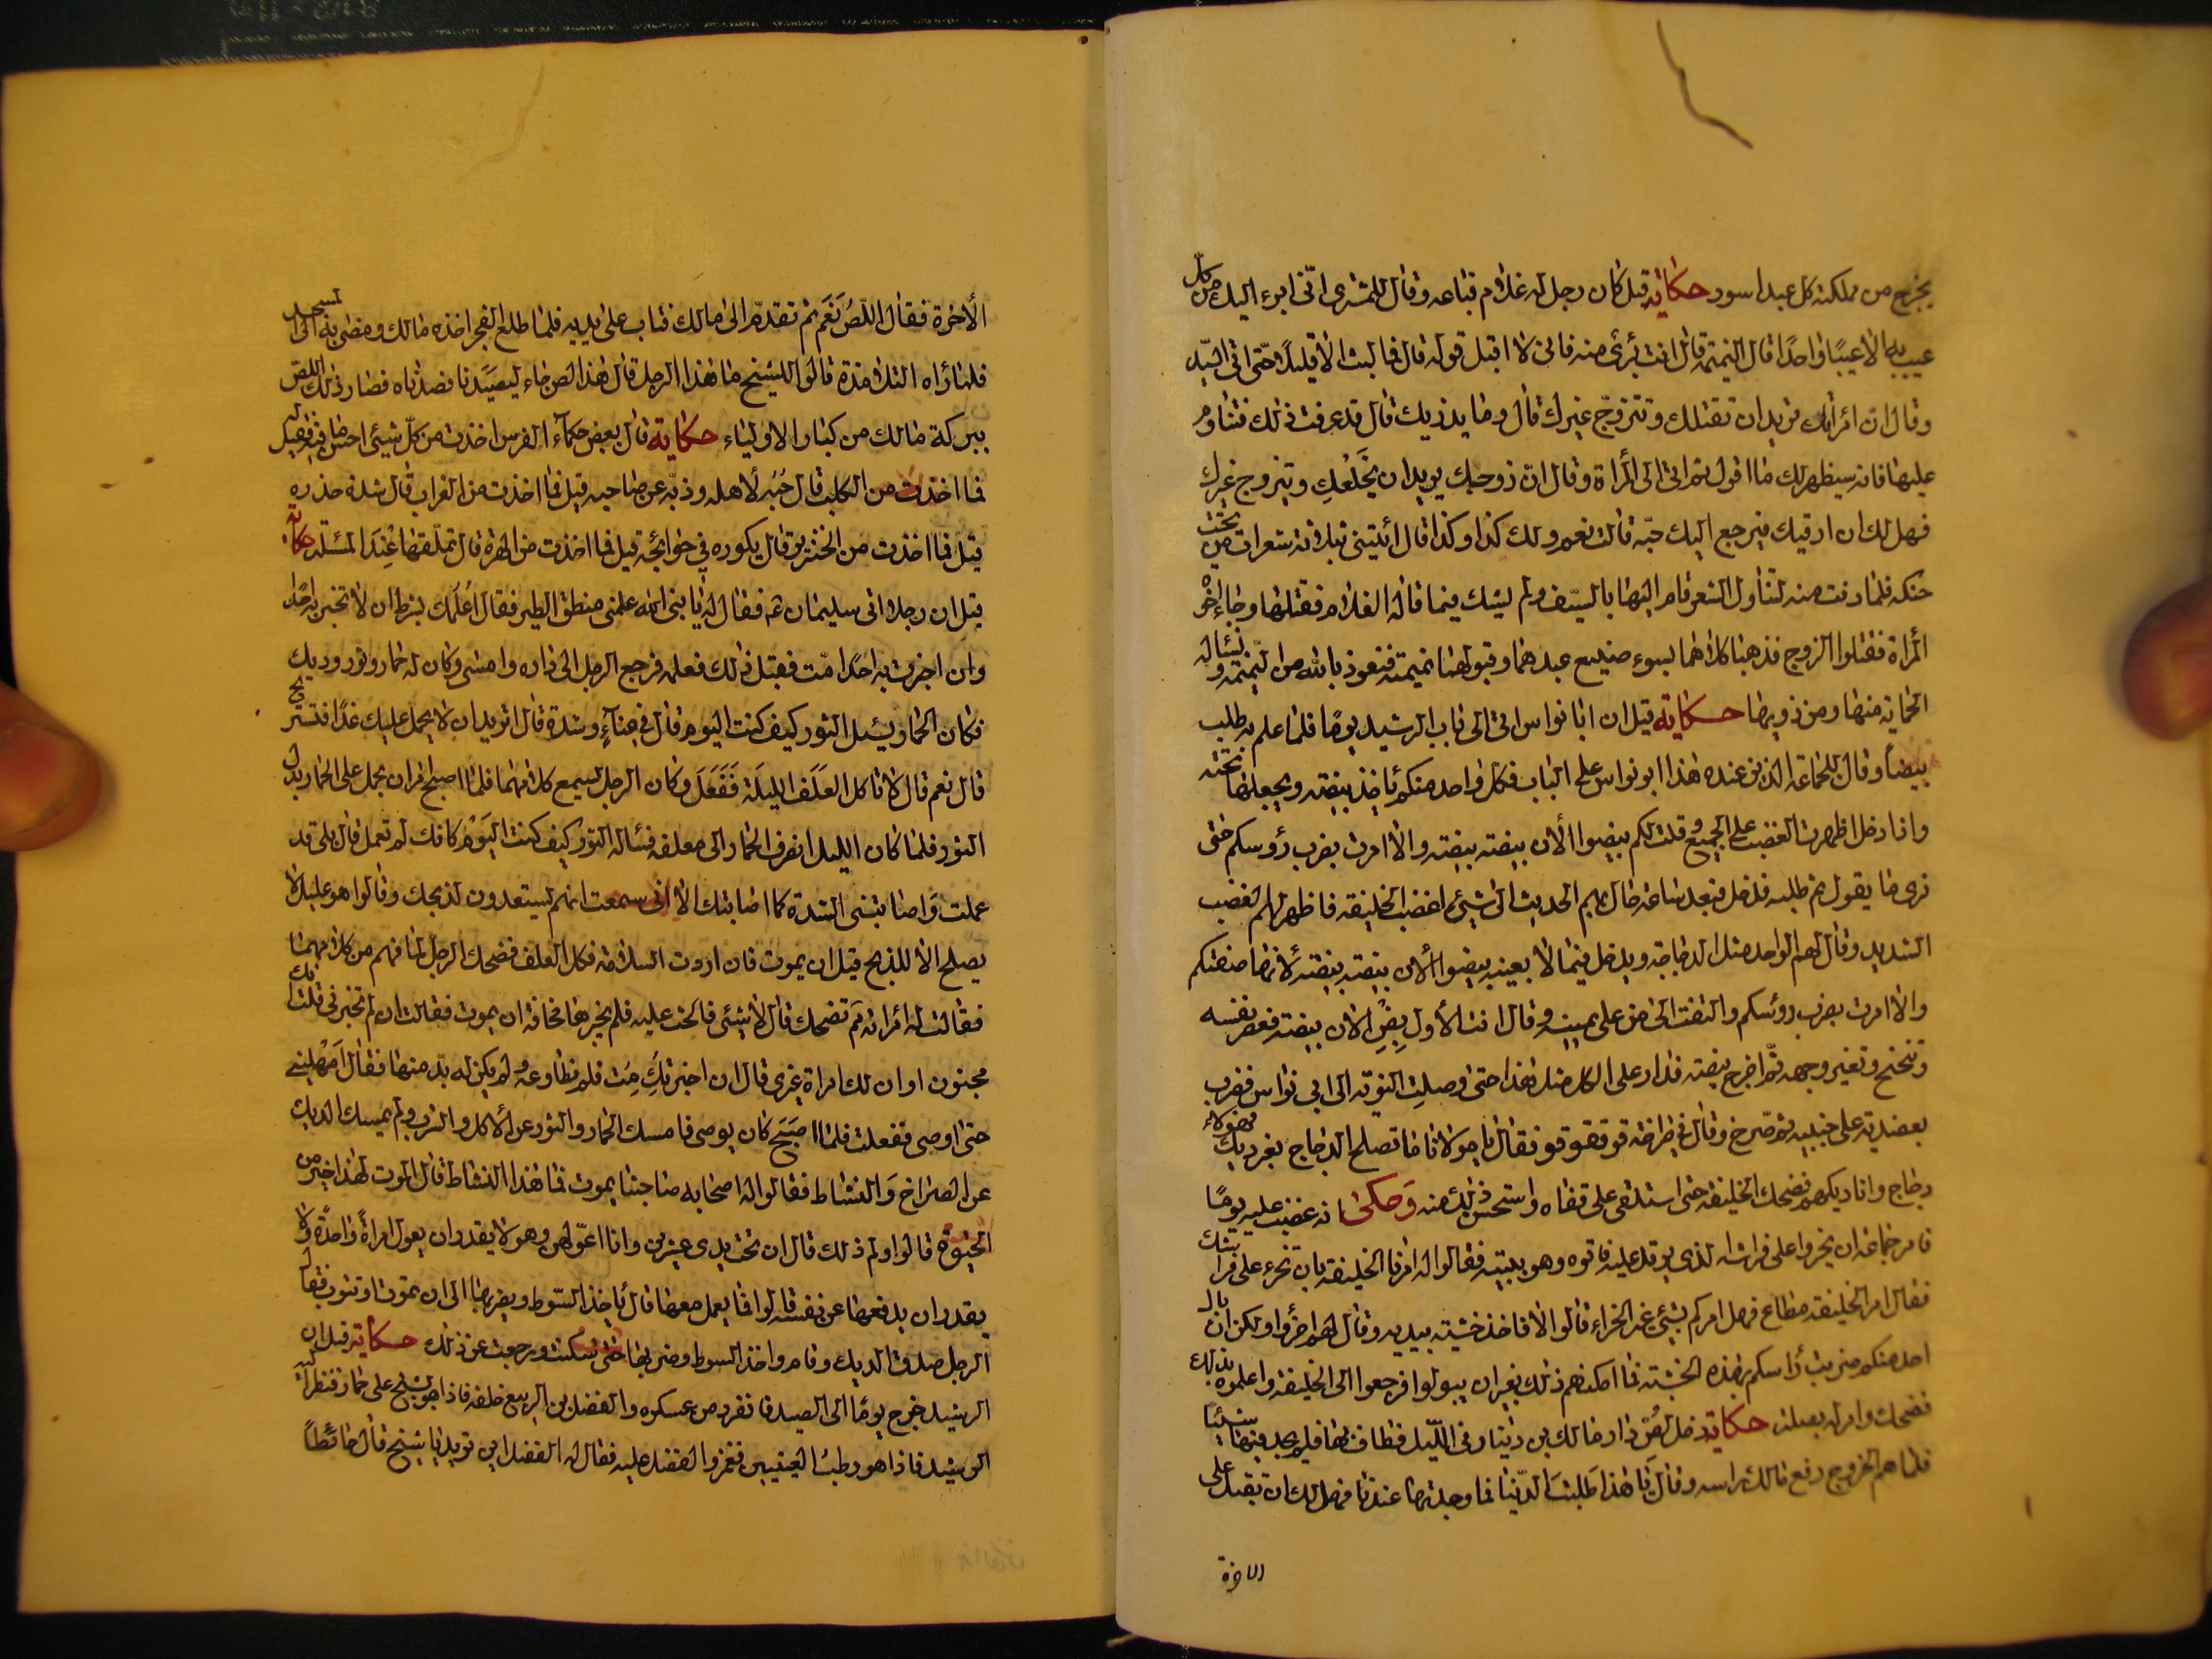 يخرج من مملكته كل عبد اسود حكاية قيل كان رجل له غلام فباعه وقال للمشتري انّي ابرء اليك من كل
عيب به الا عيبًا واحدًا قال النميمة قال انت برئ منه فاني لا اقبل قوله قال فما لبث الا قليلا حتّى اتى السّيد
وقال ان امرأتك تريد ان تقتلك وتتزوّج غيرك قال وما يدريك قال قد عرفت ذلك فتناوم
عليها فانه سيظهر لك ما اقول ثم اتى الى المرأة وقال انّ زوجك يريد ان يخلعكِ ويتزوج غيرك
فهل لك ان ارقيك فيرجع اليك حبّه قالت نعم ولك كذا وكذا قال ائتيني بثلاثة شعرات من تحت
حنكه فلما دنت منه لتناول الشعر قام اليها بالسيف ولم يشك فيما قاله الغلام فقتلها وجاء اخوة
المرأة فقتلوا الزوج فذهبا كلاهما بسوء صنيع عبدهما وقبولهما نميمته فنعوذ بالله من النّميمة ونسئاله
الحماية منها ومن ذويها حكاية قيل ان ابا نواس اتى الى باب الرشيد يومًا فلما علم به طلب
بيضًا وقال للجماعة الذين عنده هذا ابو نواس على الباب فكل واحد منكم ياخذ بيضة ويجعلها تحته
واذا دخل اظهرت الغضب على الجميع وقلت لكم بيضوا ألآن بيضة بيضة والا امرت بضرب رؤسكم حتى
نرى ما يقول ثم طلبه فدخل فبعد ساعة مال بهم الحديث الى شيئ اغضب الخليفة فاظهر لهم الغضب
الشديد وقال لهم الواحد مثل الدجاجة ويدخل فيما لا يعنيه بيضوا الأن بيضة بيضة لانها صفتكم
والا امرت بضرب روئسكم والتفت الى من على يمينه وقال انت الأول بِضِ الان بيضة فعصر نفسه
وتنحنح وتغير وجهه ثمّ اخرج بيضة فدار على الكل مثل هذا حتى وصلتِ النوبة الى ابي نواس فضرب
بعضديه على جنبيه ثم صرخ وقال في صراخه قو ققو قو فقال يا مولانا ما تصلح الدجاج بغير ديك وهؤلاء
دجاج وانا ديكهم فضحك الخليفة حتى استلقى على قفاه واستحسن ذلك منه وَحكى انه غضب عليه يومًا
فامر جماعة ان يخروا على فراشه الذي يرقد عليه فاتوه وهو ببيته فقالوا له امرنا الخليفة بان نخرء على فراشك
فقال امر الخليفة مطاع فهل امركم بشيئ غير الخراء قالوا لا فاخذ خشبة بيديه وقال لهم اخرؤا ولكن ان بال
احد منكم ضربت رأسكم بهذه الخشبة فما امكنهم ذلك بغير ان يبولوا فرجعوا الى الخليفة واعلموه بذلك
فضحك وامر له بصلة حكاية دخل لصّ دار مالك بن دينار في اللّيل فطاف بها فلم يجد فيها شيئًا
فلما هم الخروج رفع مالك براسه وقال يا هذا طلبتَ الدّنيا فما وجدتها عندنا فهل لك ان تقبل على
الاخرة
الأخرة فقال اللّصُ نَعَم ثم تقدّم الى مالك فتاب على يديه فلما طلع الفجر اخذه مالك ومضى به الى المسجد
فلما رأاه التلامذة قالوا للشيخ ما هذا الرجل قال هذا لص جاء ليصيدنا فصدناه فصار ذلك اللص
ببركة مالك من كبار الاولياء حكاية قال بعض حكمآء الفرس اخذت من كلّ شيئ احسن ما فيه فقيل له
فما اخذت من الكلب قال حُبّه لأهله وذبّه عن صاحبه قيل فما اخذت من الغراب قال شدة حذره
قيل فما اخذت من الخنزير قال بكوره في حوائجه قيل فما اخذت من الهرة قال تملّقها عِندَ المسئلة حكاية
قيل ان رجلا اتى سليمان عم فقال له يا نبى الله علمني منطق الطير فقال اُعلّمك بشرط ان لا تخبر به احدًا
وان اخبرت به احدًا متّ فقبل ذلك فعلمه فرجع الرجل الى داره وامسى وكان له حمار وثور وديك
فكان الحمار يسئل الثور كيف كنت اليوم قال في عناءٍ وشدة قال اتريد ان لا يحمل عليك غدًا فتستريح
قال نعم قال لا تاكل العَلَف الليلَة فَفَعَلَ وكان الرجل يسمع كلامهما فلما اصبح امر ان يحمل على الحمار بدل
الثور فلما كان الليل انصرف الحمار الى معلفه فسئاله الثور كيف كنت اليَوْم كانك لم تعمل قال بلى قد
عملت وَاصابتنى الشدة كما اصابتك الا انّى سمعت انهم يستعدون لذبحك وقالوا هو عليل لا
يصلح الا للذبح قبل ان يموت فان اردت السلامة فكل العلف فضحك الرجل لما فهم من كلامهما
فقالت له امرأته لم تضحك قال لا شيئ فالحّت عليه فلم يخبرها مخافة ان يموت فقالت ان لم تخبرني قلت انك
مجنون او ان لك امراة غيرى قال ان اخبرتكِ مِت فلم تطاوعه ولم يكن له بد منها فقال اَمْهِلينى
حتى اوصى ففعلت فلما اصبَحَ كان يوصى فامسك الحمار والثور عن الأكل والشرب ولم يمسك الديك
عن الصراخ وَالنشاط فقالوا له اصحابه صاحبنا يموت فما هذا النشاط قال الموت لهذا خير من
الحيوة قالوا ولم ذلك قال ان تحت يدى عشرين وانا اعوّلهن وهو لا يقدر ان يعول امرأةً واحدةً ولا
يقدر ان يدفعها عن نفسه قالوا فما يعمل معها قال يأخذ السّوط ويضربها الى ان تموت او تتوب فقال
الرجل صدق الديك وقام واخذ السوط وضربها حتى سكنت ورجعت عن ذلك حكاية قيل ان
الرشيد خرج يومًا الى الصيد فانفرد من عسكره والفضل بن الربيع خلفه فاذا هو بشيخ على حمار فنظر اليه
الرشيد فاذا هو رطبُ العينين فغمز الفضل عليه فقال له الفضل اين تريد يا شيخ قال حائطًا